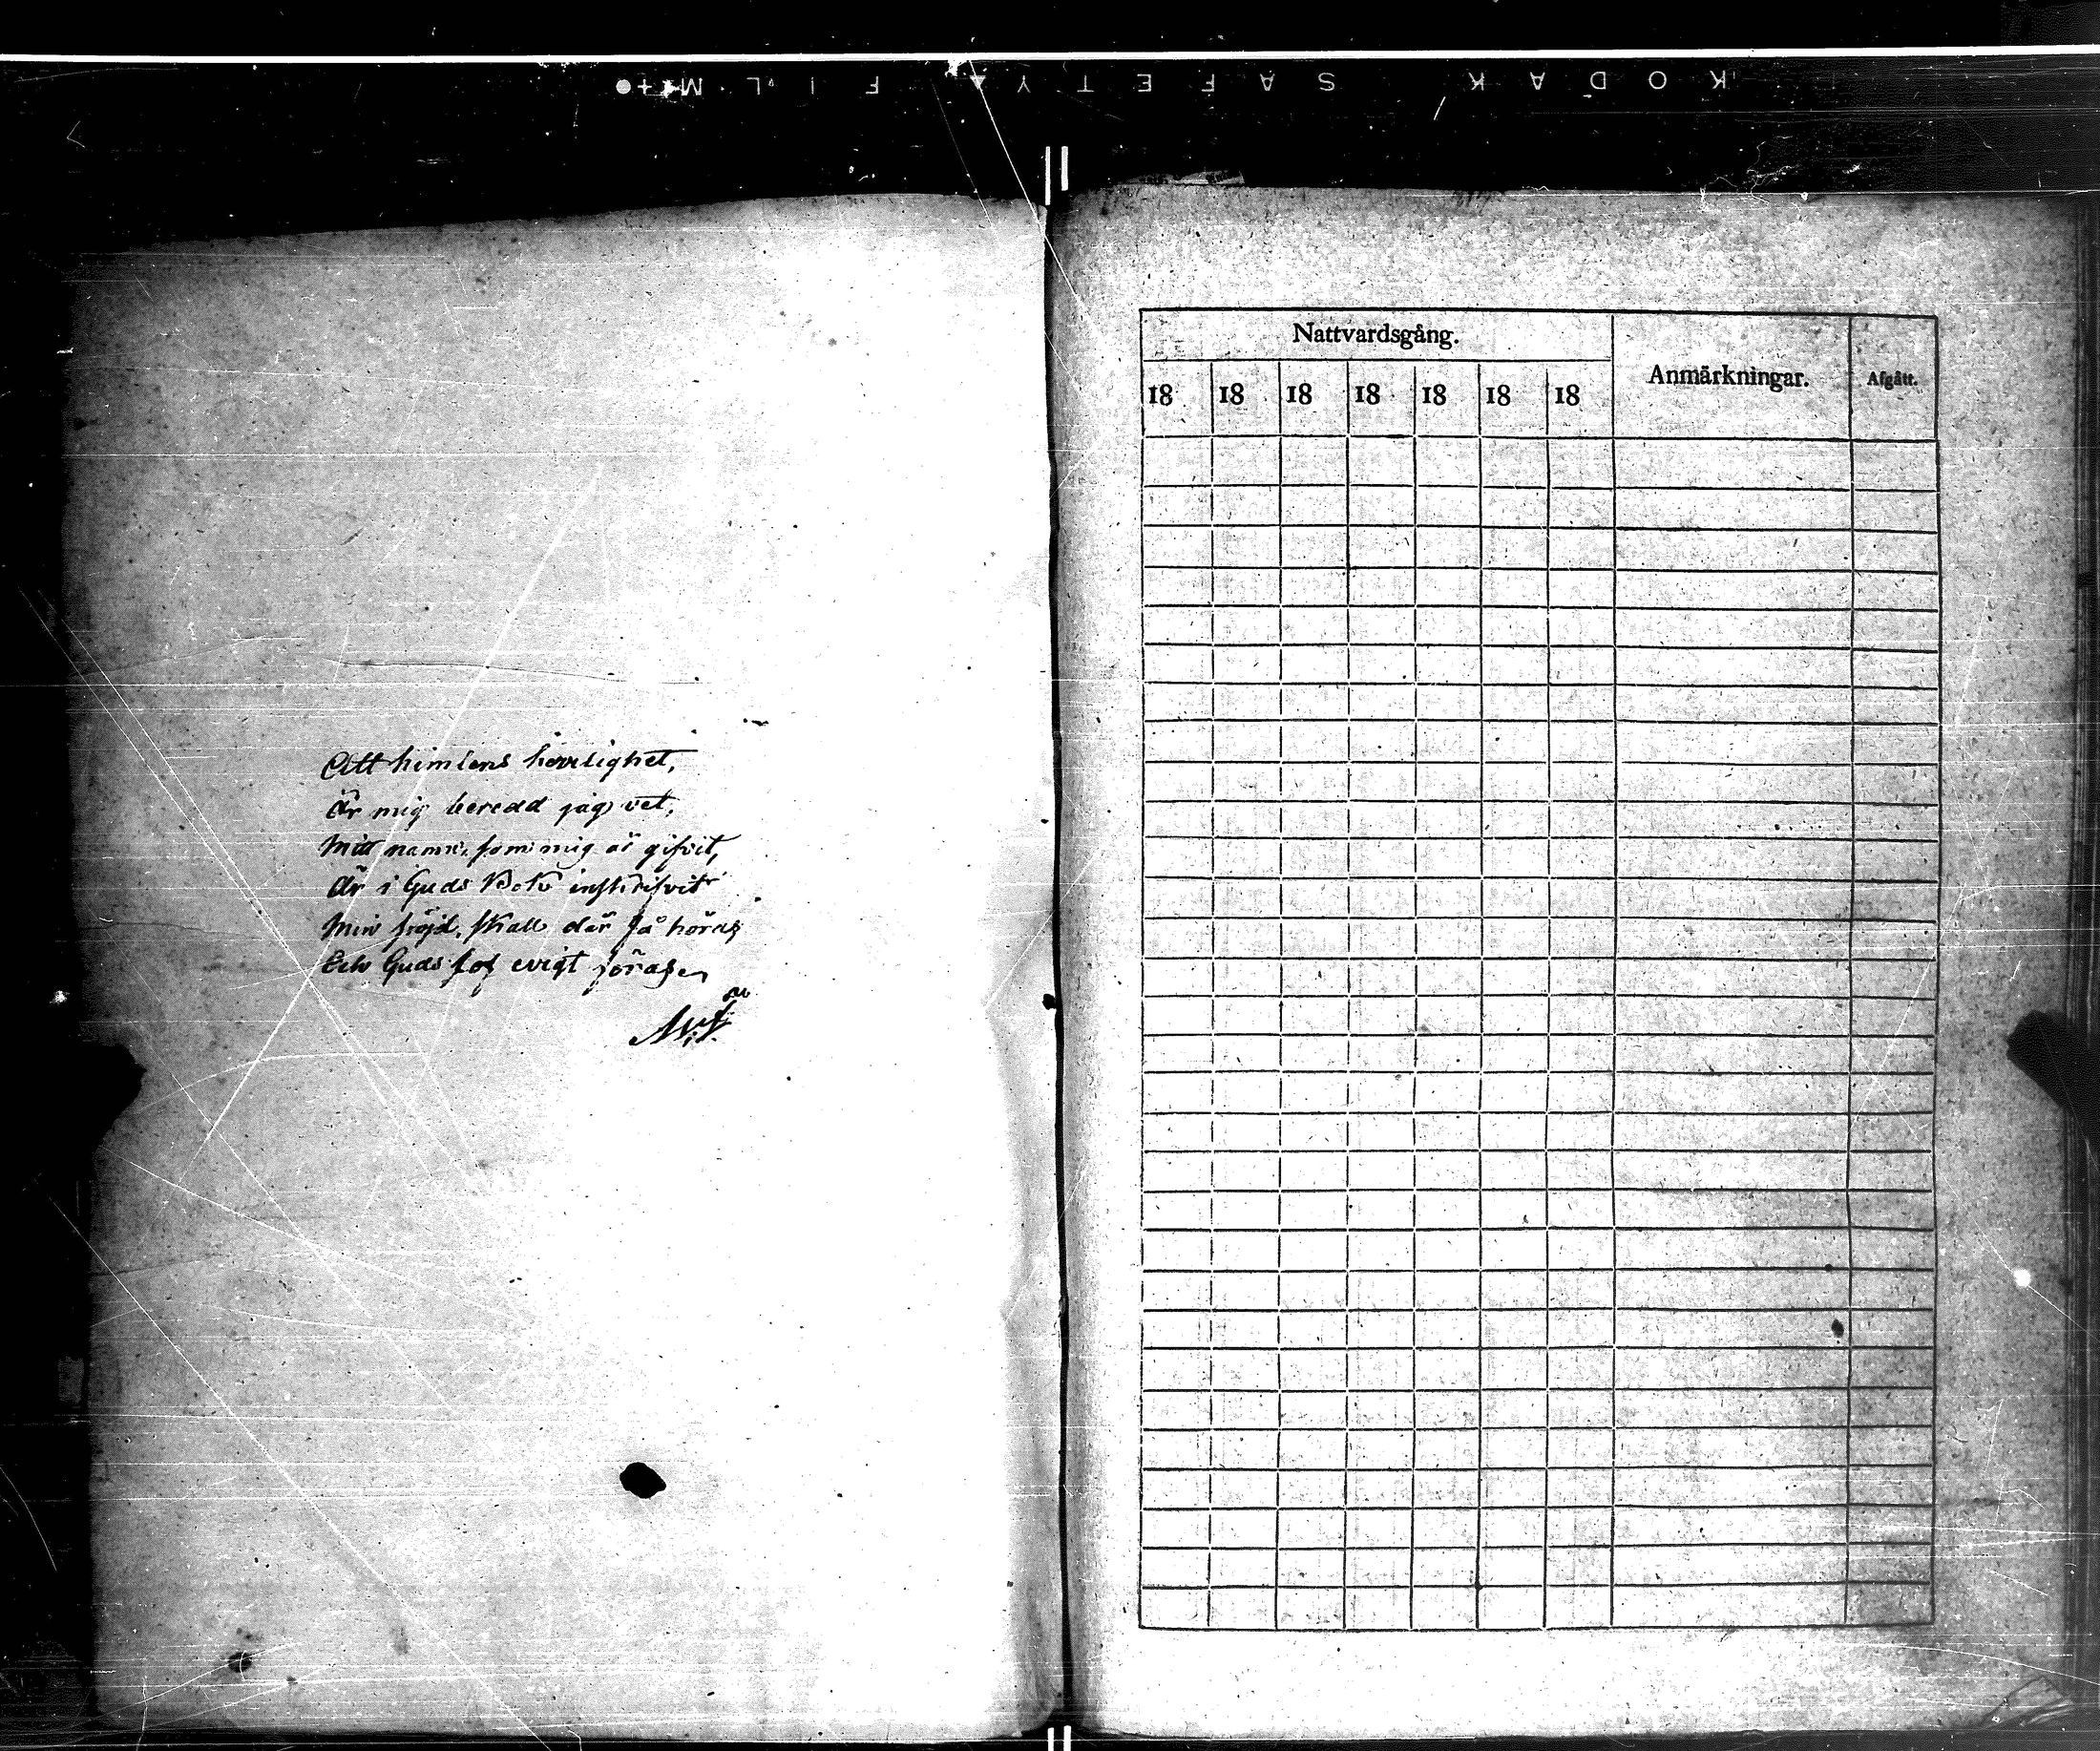 KODAK SAFETY FILM
Att himlens herrlighet,
Är mig beredd jag vet,
Mitt namn, som mig är gifvit,
Är i Guds Bok inskrifvit
Min fröjd, skall där få höras
Och Guds lof evigt föras
Nattvardsgång.
18 18 18 18 18 18 18
Anmärkningar.
Afgått.